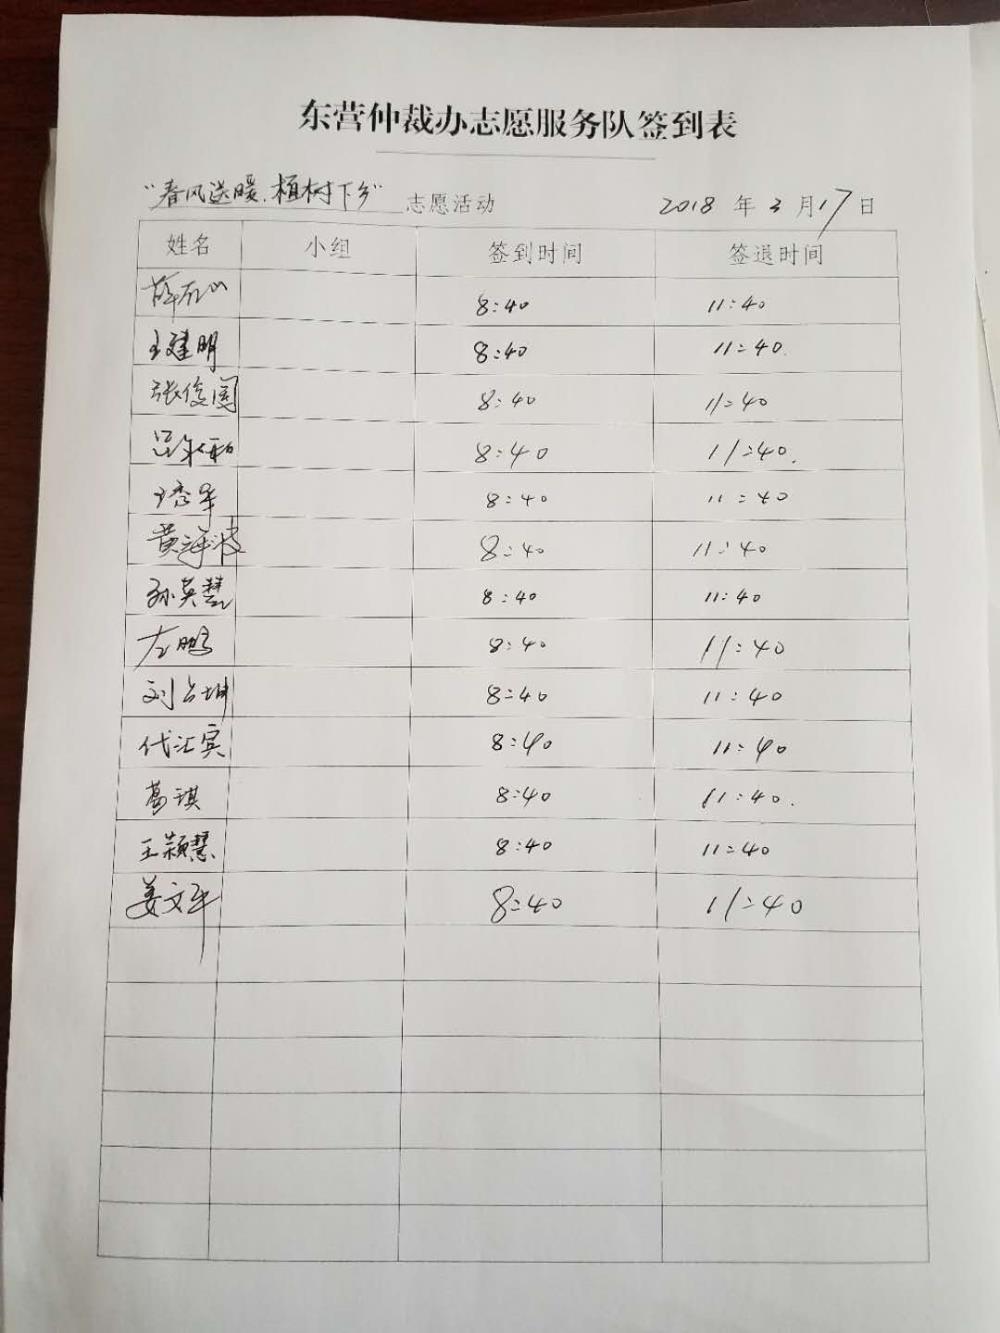 东营仲裁办志愿服务队签到表
“春风送暖.植树下乡” 志愿活动 2018 年 3 月 17 日
姓名 小组 签到时间 签退时间
8:40 11:40
王建明 8:40 11:40.
张俊国 8:40 11:40
8:40 11:40.
王秀军 8:40 11:40
黄海波 8:40 11:40
孙英慧 8:40 11:40
左鹏 8:40 11:40
刘占坤 8:40 11:40
代汇宾 8:40 11:40
葛琪 8:40 11:40.
王颖慧 8:40 11:40
姜文军 8:40 11:40